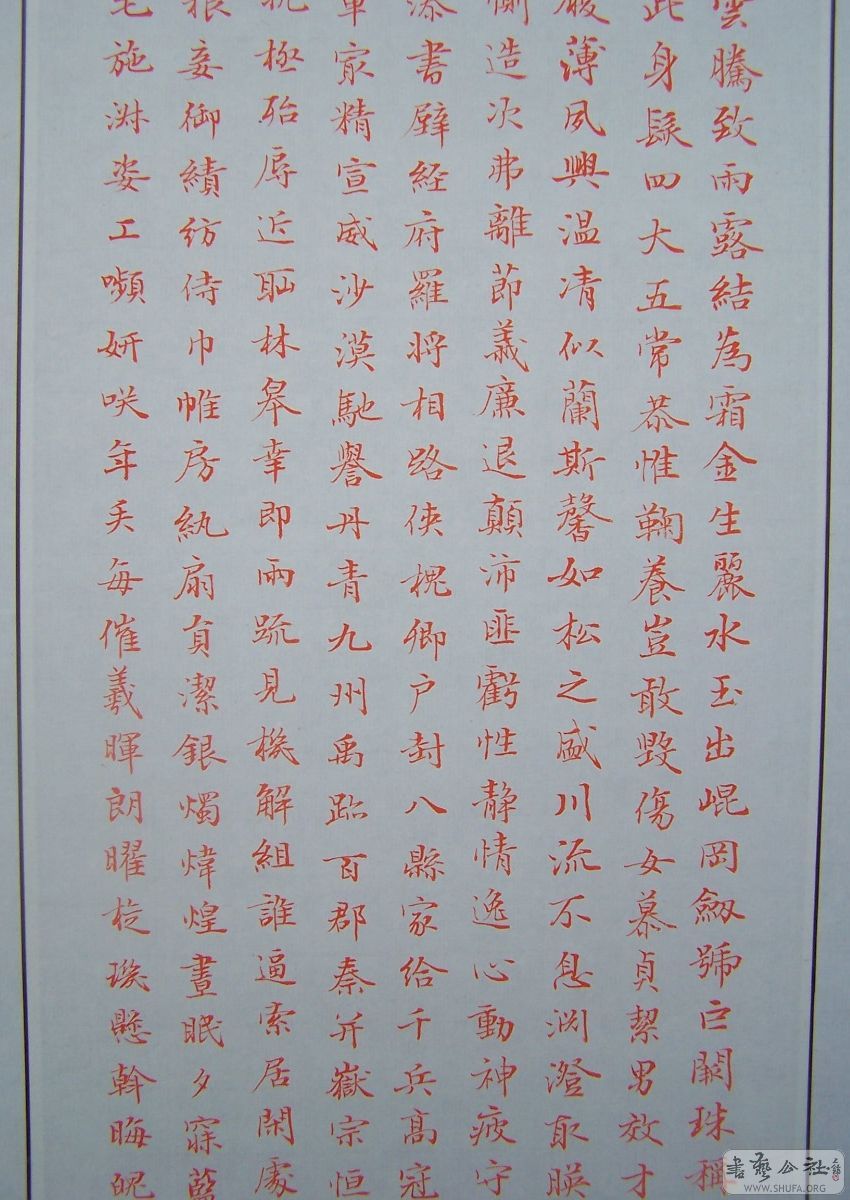 雲騰致雨露結為霜金生麗水玉出崐岡劔號巨闕珠稱
此身髮四大五常恭惟鞠養豈敢毀傷女慕貞絜男效才
履薄夙興温凊似蘭斯馨如松之盛川流不息渊澄取暎
惻造次弗離節義廉退顛沛匪虧性静情逸心動神疲守
漆書壁経府羅将相路侠槐卿户封八縣家給千兵髙冠
軍冣精宣威沙漠馳譽丹青九州禹跡百郡秦并嶽宗恒
抗極殆辱近耻林皋幸即兩疏見機解組誰逼索居閑處
粮妾御績紡侍巾帷房紈扇員潔銀燭煒煌晝眠夕寐藍
毛施淋姿工嚬妍咲年矢每催羲暉朗曜旋璣懸斡晦魄
書藝公社
WWW.SHUFA.ORG